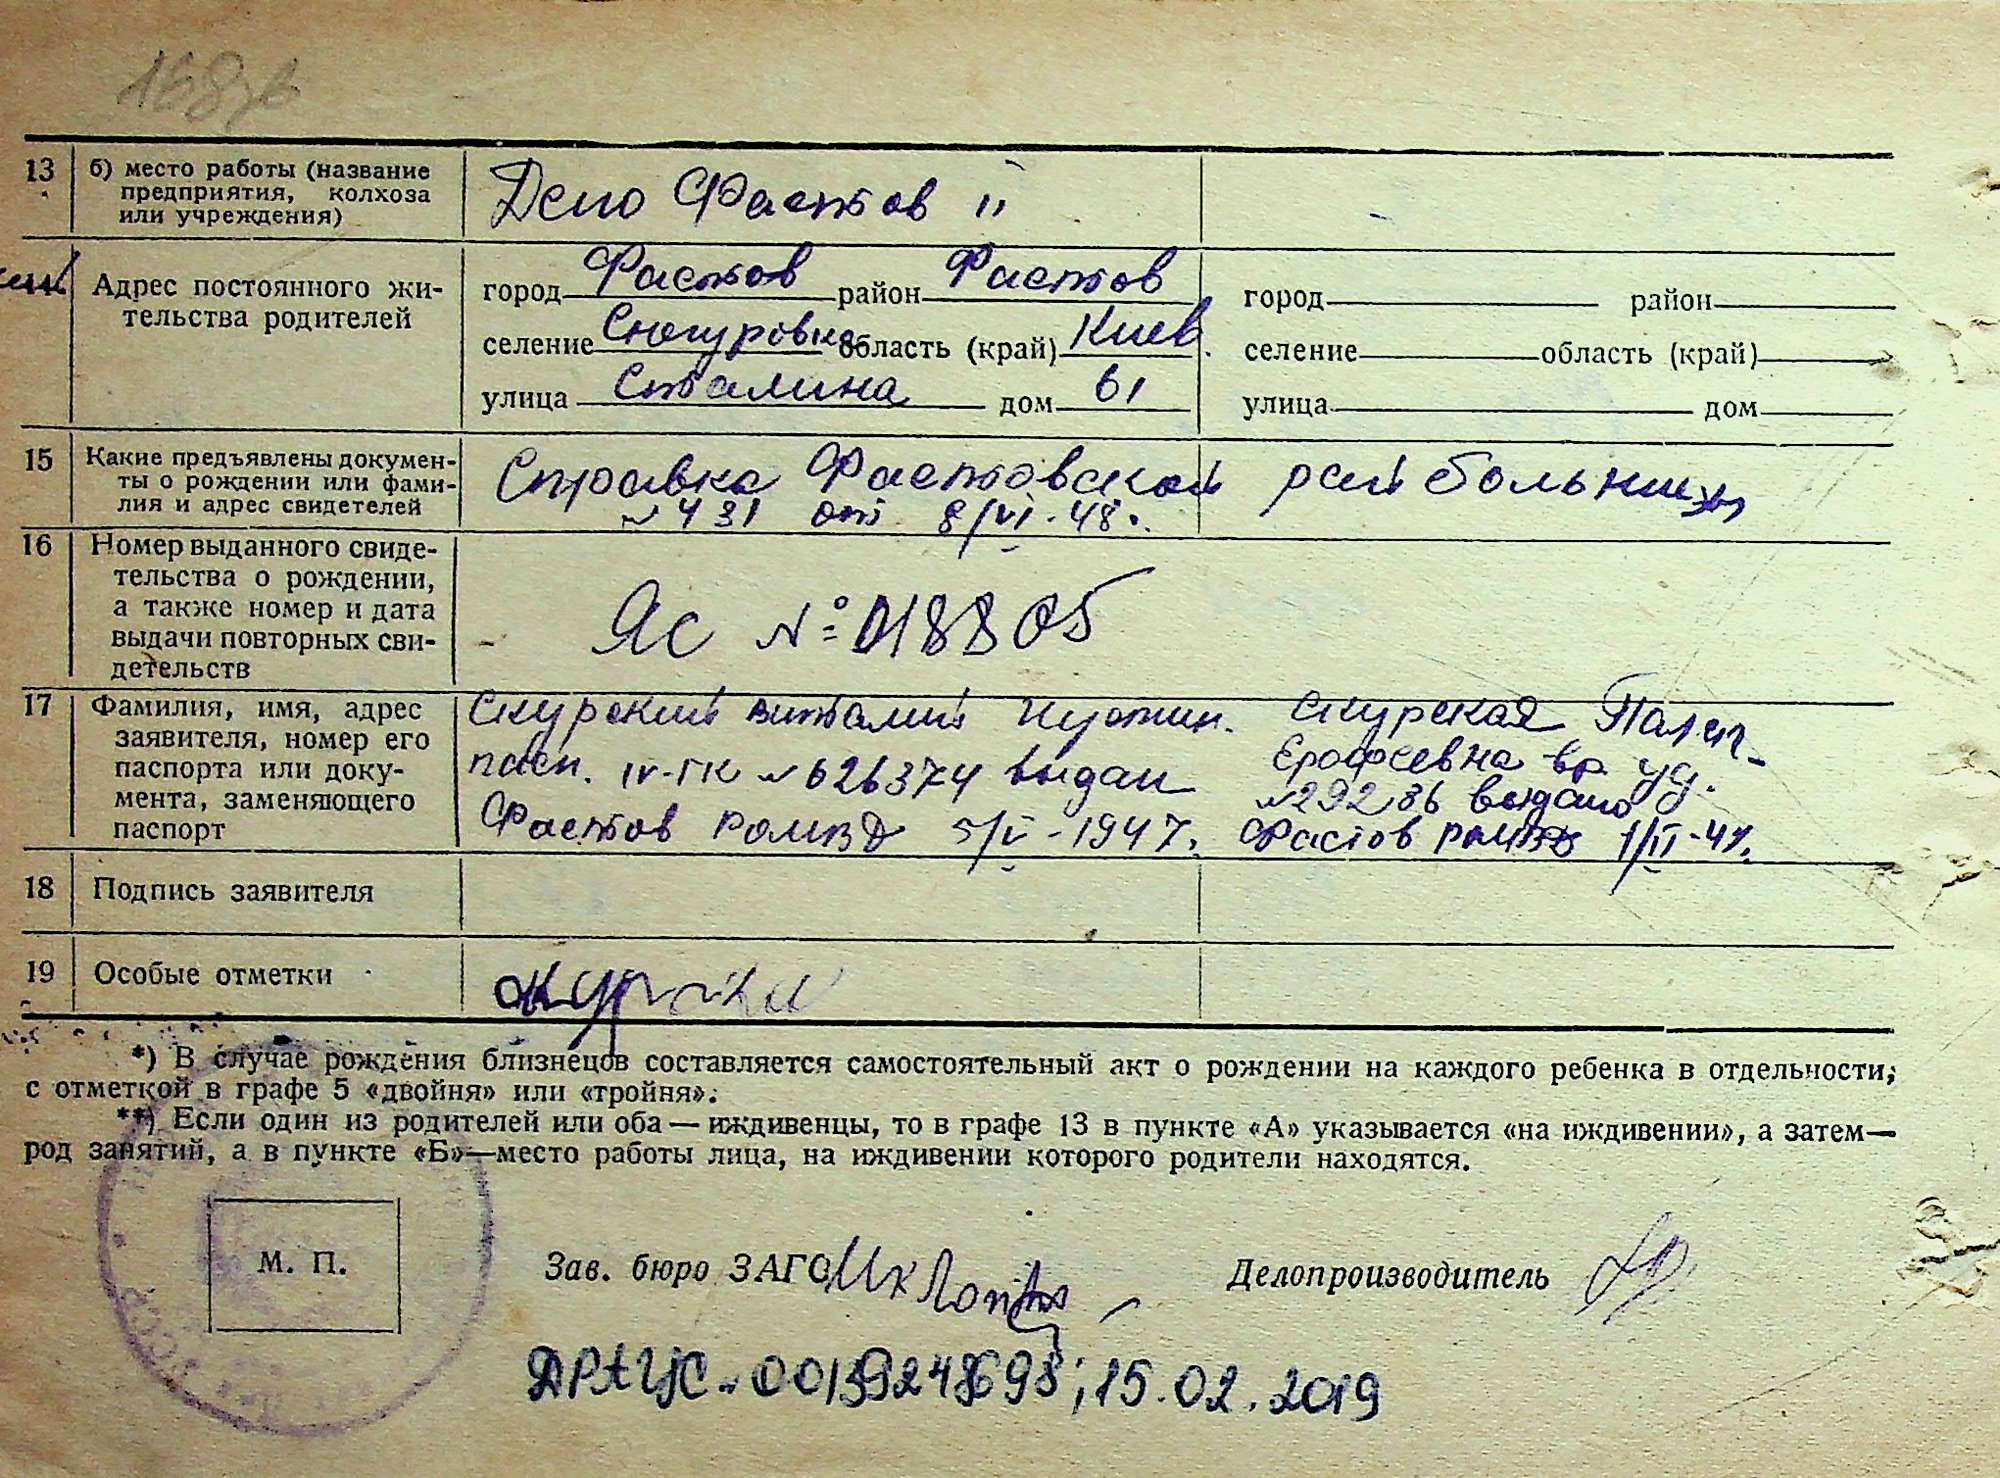 168
13 б) место работы (название
предприятия, колхоза
или учреждения)
Депо Фастов II
Адрес постоянного жи-
тельства родителей
город Фастов район Фастов
селение Снегуровка область (край) Киев.
улица Сталина дом 61
город район
селение область (край)
улица дом
15 Какие предъявлены докумен-
ты о рождении или фами-
лия и адрес свидетелей
Справка Фастовской рай больницы
№ 431 от 8/VI-48.
16 Номер выданного свиде-
тельства о рождении,
а также номер и дата
выдачи повторных сви-
детельств
ЯС № 018805
17 Фамилия, имя, адрес
заявителя, номер его
паспорта или доку-
мента, заменяющего
паспорт
Скурский Виталий
пасп. IV-ГК № 626374 выдан
Фастов РОМВД 5/V-1947.
Скурская
Ерофеевна вр. уд.
№ 29286 выдано
Фастов РОМВД
18 Подпись заявителя
19 Особые отметки
*) В случае рождения близнецов составляется самостоятельный акт о рождении на каждого ребенка в отдельности,
с отметкой в графе 5 «двойня» или «тройня».
**) Если один из родителей или оба — иждивенцы, то в графе 13 в пункте «А» указывается «на иждивении», а затем—
род занятий, а в пункте «Б»—место работы лица, на иждивении которого родители находятся.
М. П.
Зав. бюро ЗАГС
Делопроизводитель
ДРАЦС - 00139248698; 15.02.2019